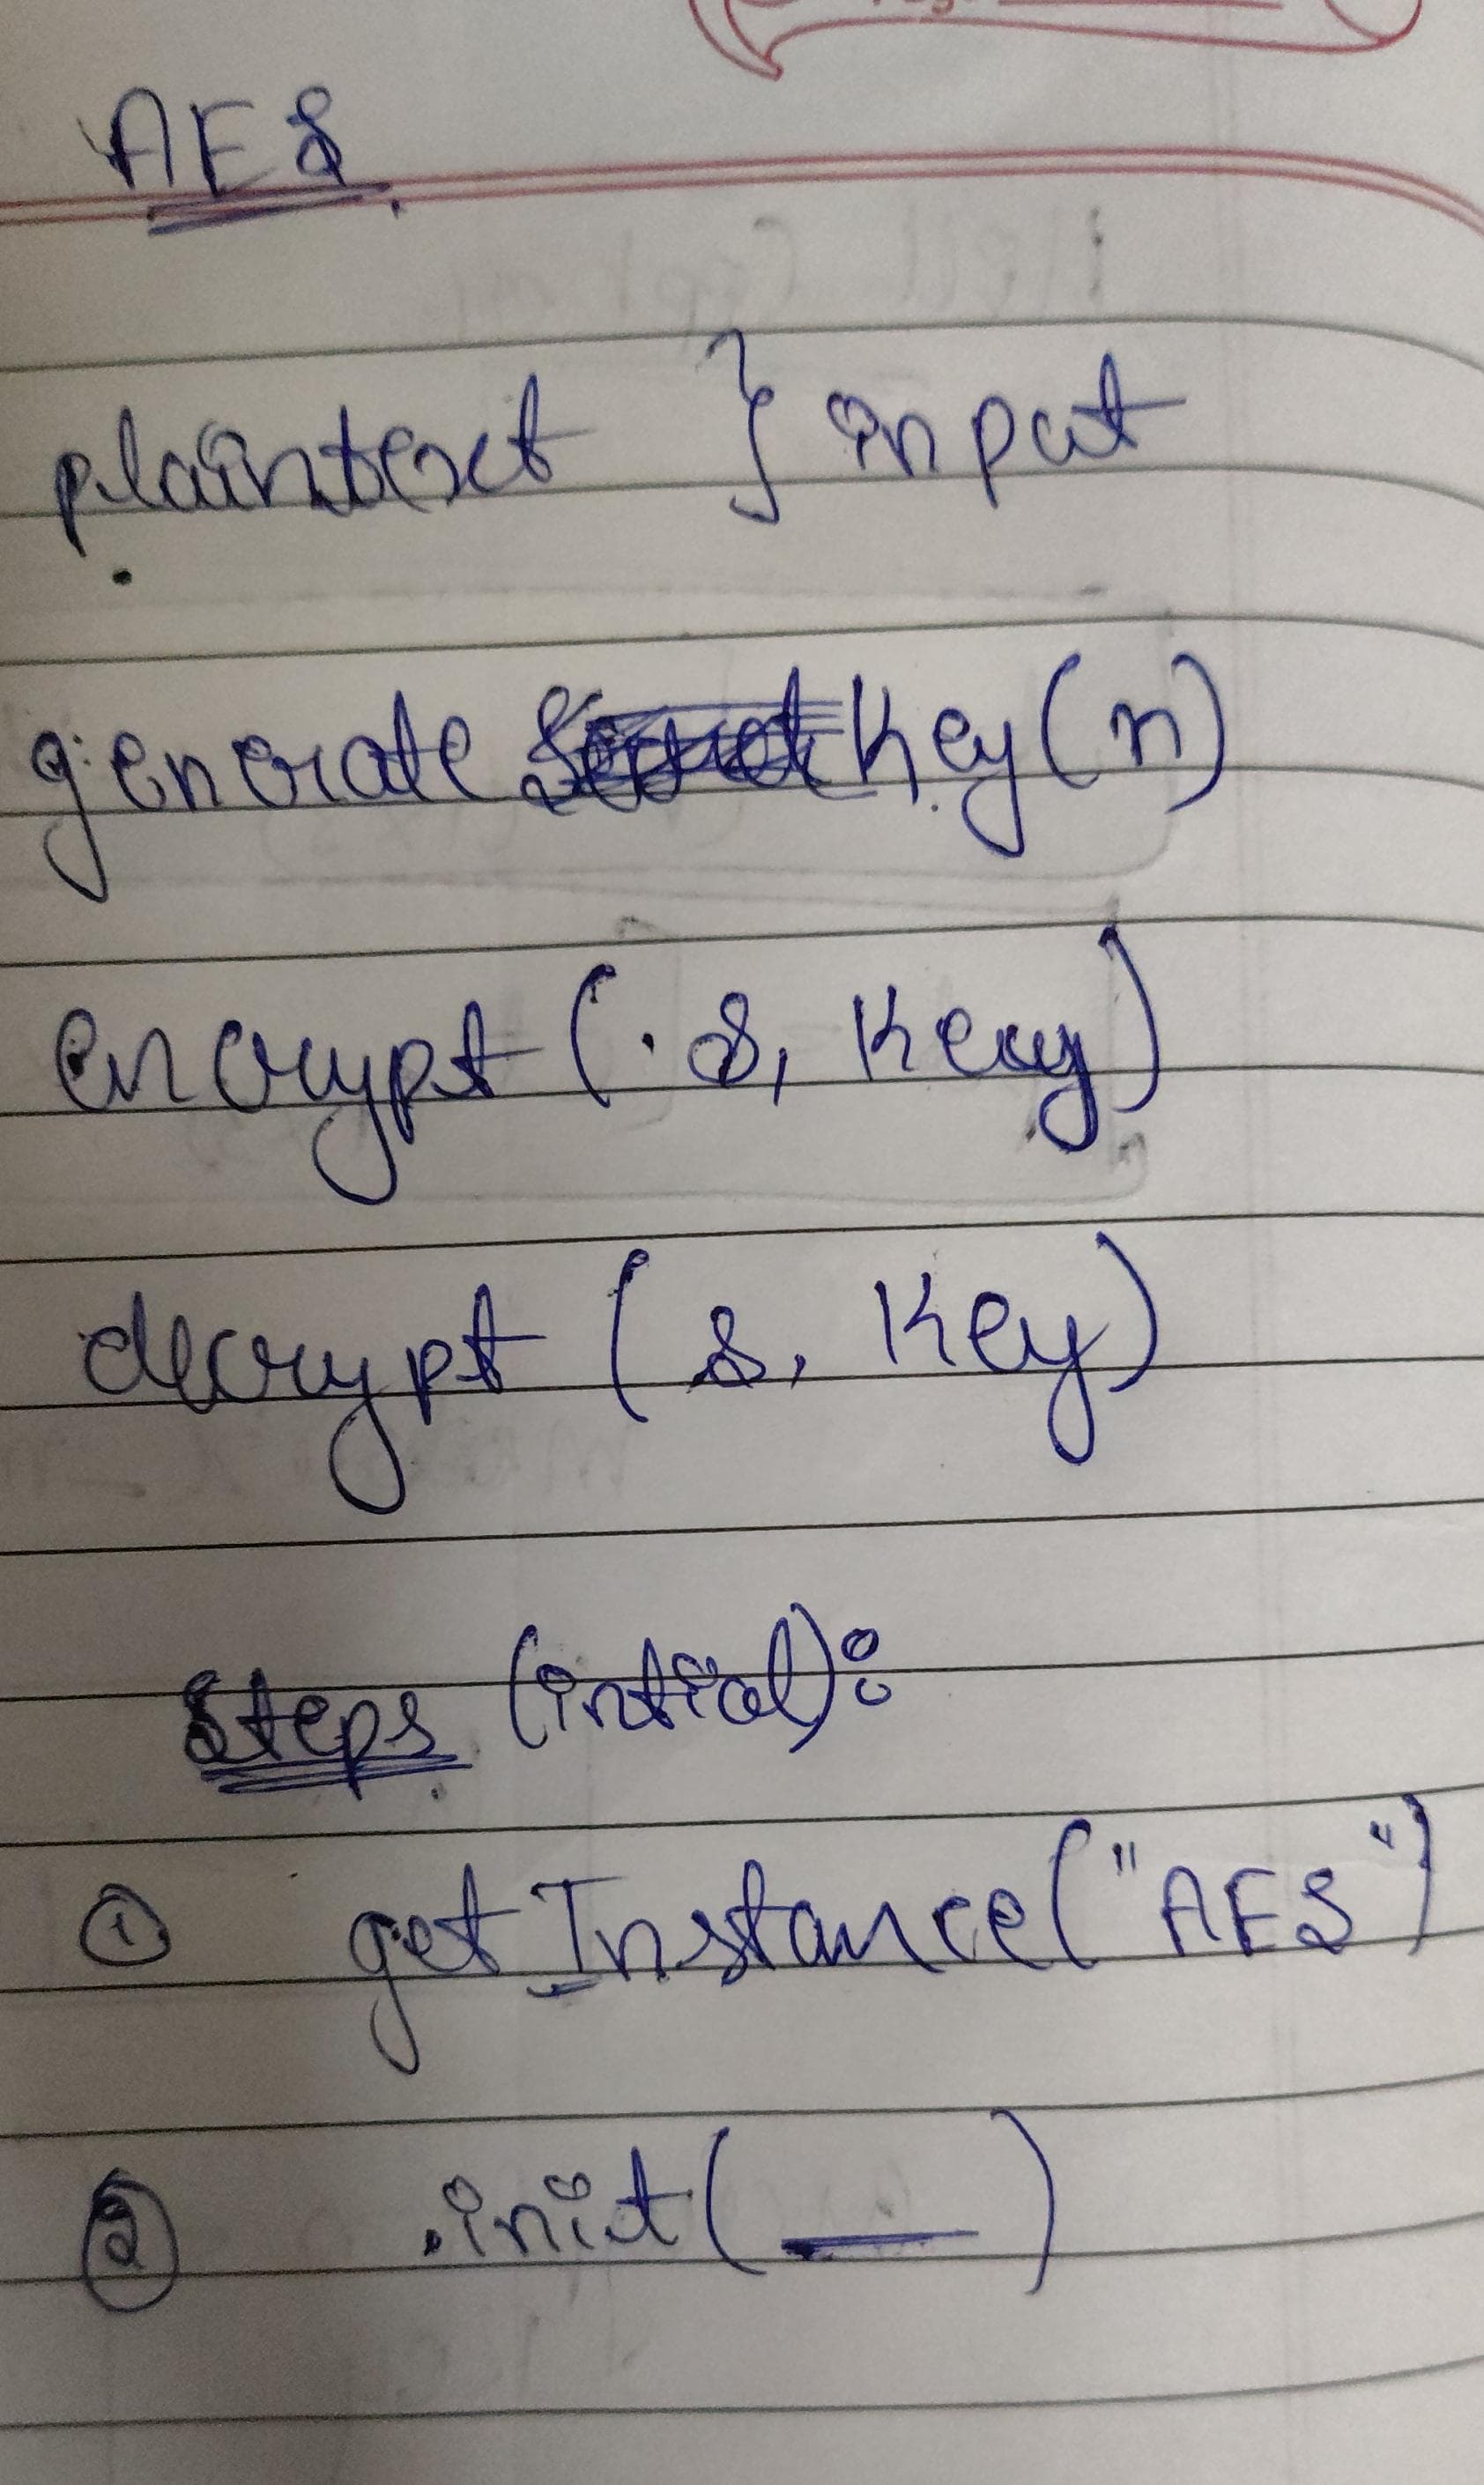 AES
plaintext } input
generate Key(n)
encrypt (s, Key)
decrypt (s, Key)
Steps (intial):
① getInstance("AES")
② .init( __ )